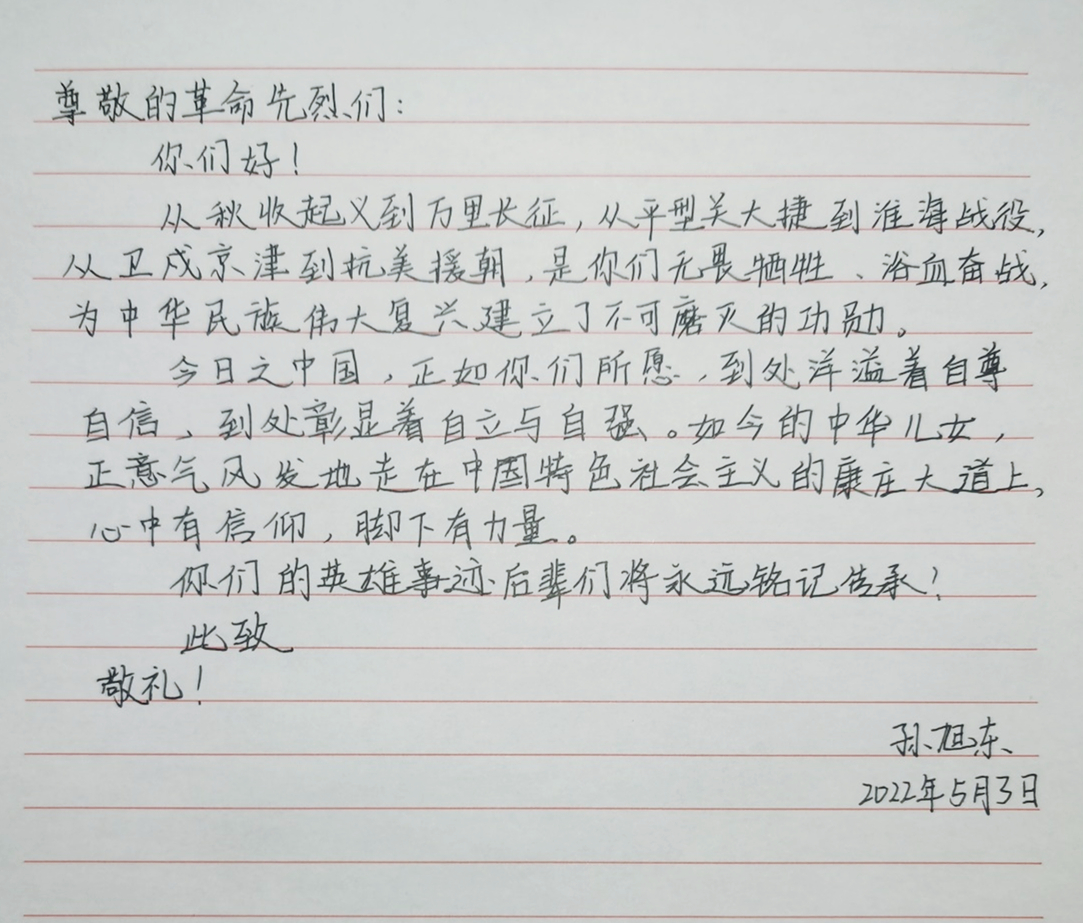 尊敬的革命先烈们：
你们好！
从秋收起义到万里长征，从平型关大捷到淮海战役，
从卫戍京津到抗美援朝，是你们无畏牺牲、浴血奋战，
为中华民族伟大复兴建立了不可磨灭的功勋。
今日之中国，正如你们所愿，到处洋溢着自尊
自信、到处彰显着自立与自强。如今的中华儿女，
正意气风发地走在中国特色社会主义的康庄大道上，
心中有信仰，脚下有力量。
你们的英雄事迹后辈们将永远铭记传承！
此致
敬礼！
孙旭东
2022年5月3日